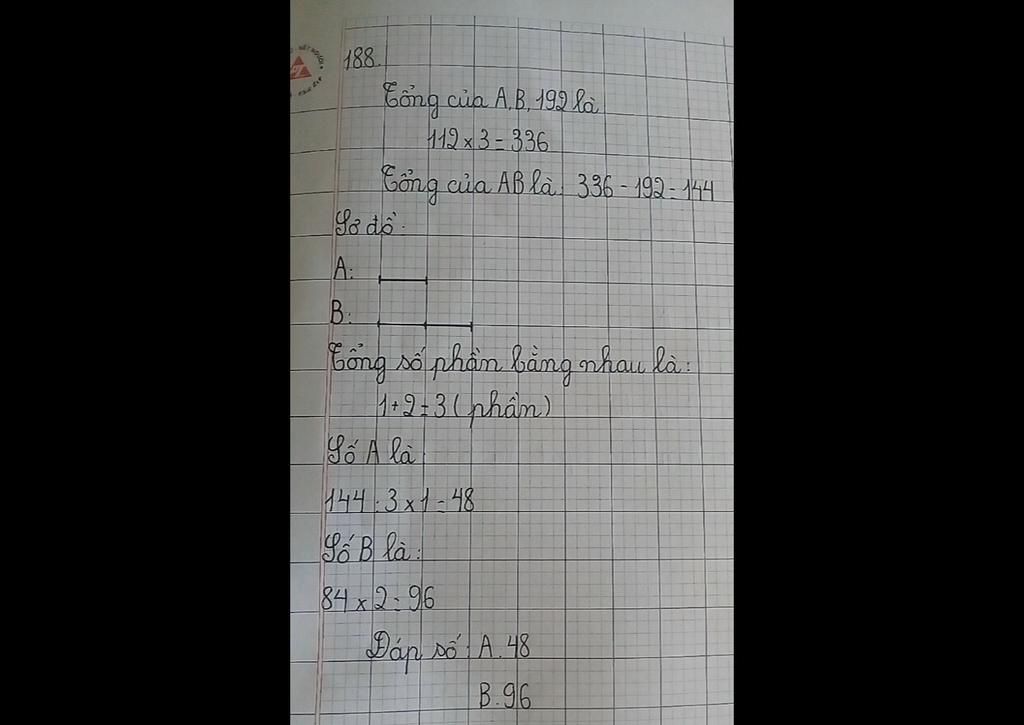 188.
Tổng của A, B, 192 là
112 x 3 = 336
Tổng của AB là: 336 - 192 = 144
Sơ đồ:
A:
B:
Tổng số phần bằng nhau là:
1 + 2 = 3 (phần)
Số A là
144 : 3 x 1 = 48
Số B là:
84 x 2 = 96
Đáp số: A. 48
B. 96